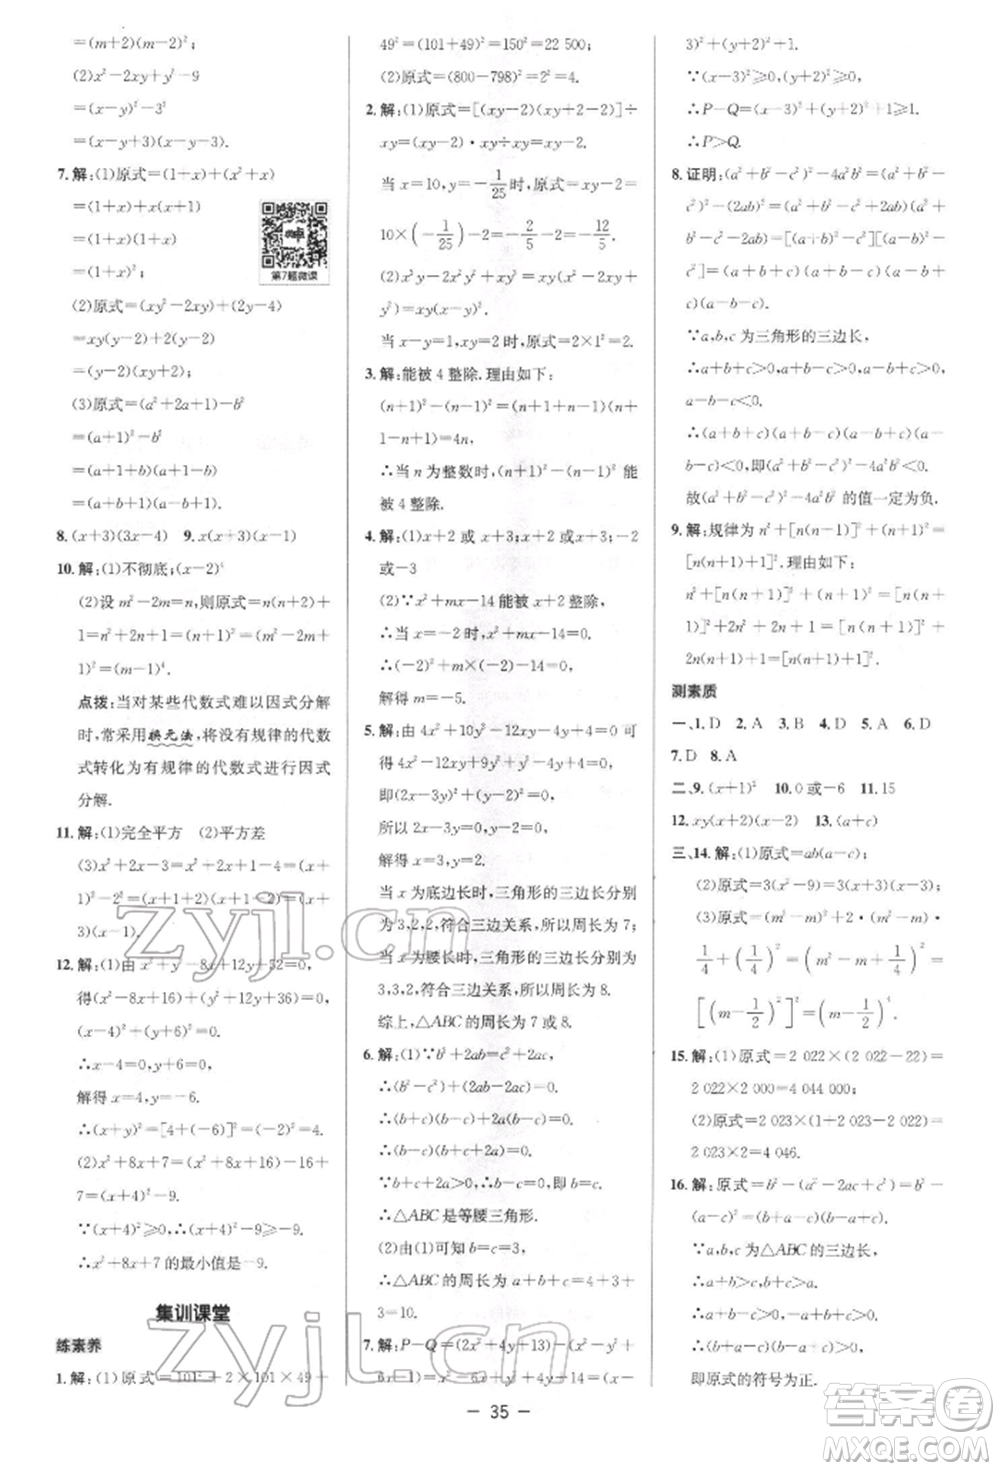 =(m+2)(m-2)²;
(2)x²-2xy+y²-9
=(x-y)²-3²
=(x-y+3)(x-y-3).
7.解:(1)原式=(1+x)+(x²+x)
=(1+x)+x(x+1)
=(1+x)(1+x)
=(1+x)².
第7题微课
(2)原式=(xy²-2xy)+(2y-4)
=xy(y-2)+2(y-2)
=(y-2)(xy+2).
(3)原式=(a²+2a+1)-b²
=(a+1)²-b²
=(a+1+b)(a+1-b)
=(a+b+1)(a-b+1).
8.(x+3)(3x-4) 9.x(x+3)(x-1)
10.解:(1)不彻底;(x-2)⁴
(2)设m²-2m=n,则原式=n(n+2)+
1=n²+2n+1=(n+1)²=(m²-2m+
1)²=(m-1)⁴.
点拨:当对某些代数式难以因式分解
时,常采用换元法,将没有规律的代数
式转化为有规律的代数式进行因式
分解.
11.解:(1)完全平方 (2)平方差
(3)x²+2x-3=x²+2x+1-1-3=(x+
1)²-2²=(x+1+2)(x+1-2)=(x+
3)(x-1).
12.解:(1)由x²+y²-8x+12y+52=0,得
(x²-8x+16)+(y²+12y+36)=0,
(x-4)²+(y+6)²=0,
∴x-4=0,y+6=0,
解得x=4,y=-6,
∴(x+y)²=[4+(-6)]²=(-2)²=4.
(2)x²+8x+7=(x²+8x+16)-16+
7=(x+4)²-9.
∵(x+4)²≥0,∴(x+4)²-9≥-9.
∴x²+8x+7的最小值是-9.
集训课堂
练素养
1.解:(1)原式=101²+2×101×49+
49²=(101+49)²=150²=22 500;
(2)原式=(800-798)²=2²=4.
2.解:(1)原式=[(xy-2)(xy+2-2)]÷
xy=(xy-2)·xy÷xy=xy-2.
当x=10,y=-1/25时,原式=xy-2=
10×(-1/25)-2=-2/5-2=-12/5.
(2)x³y-2x²y²+xy³=xy(x²-2xy+
y²)=xy(x-y)².
当x-y=1,xy=2时,原式=2×1²=2.
3.解:能被4整除.理由如下:
(n+1)²-(n-1)²=(n+1+n-1)(n+
1-n+1)=4n,
∴当n为整数时,(n+1)²-(n-1)²能
被4整除.
4.解:(1)x+2或x+3;x+2;-2或-3
或-3
(2)∵x²+mx-14能被x+2整除,
∴当x=-2时,x²+mx-14=0.
∴(-2)²+m×(-2)-14=0,
解得m=-5.
5.解:由4x²+10y²-12xy-4y+4=0可
得4x²-12xy+9y²+y²-4y+4=0,
即(2x-3y)²+(y-2)²=0,
所以2x-3y=0,y-2=0,
解得x=3,y=2.
当x为底边长时,三角形的三边长分别
为3,2,2,符合三边关系,所以周长为7;
当x为腰长时,三角形的三边长分别为
3,3,2,符合三边关系,所以周长为8.
综上,△ABC的周长为7或8.
6.解:(1)∵b²+2ab=c²+2ac,
∴(b²-c²)+(2ab-2ac)=0,
∴(b+c)(b-c)+2a(b-c)=0,
∴(b-c)(b+c+2a)=0.
∵b+c+2a≠0,∴b-c=0,∴b=c,
∴△ABC是等腰三角形.
(2)由(1)可知b=c=3,
∴△ABC的周长为a+b+c=4+3
+3=10.
7.解:P-Q=(2x²+4y+13)-(x²-y²+
6x-1)=x²-6x+y²+4y+14=(x-
3)²+(y+2)²+1.
∵(x-3)²≥0,(y+2)²≥0,
∴P-Q=(x-3)²+(y+2)²+1≥1,
∴P>Q.
8.证明:(a²+b²-c²)²-4a²b²=(a²+b²-
c²)²-(2ab)²=(a²+b²-c²+2ab)(a²+
b²-c²-2ab)=[(a+b)²-c²][(a-b)²-
c²]=(a+b+c)(a+b-c)(a-b+
c)(a-b-c).
∵a,b,c为三角形的三边长,
∴a+b+c>0,a+b-c>0,a-b+c>0,
a-b-c<0.
∴(a+b+c)(a+b-c)(a-b+c)(a-
b-c)<0,即(a²+b²-c²)²-4a²b²<0.
故(a²+b²-c²)²-4a²b²的值一定为负.
9.解:规律为n²+[n(n+1)]²+(n+1)²=
[n(n+1)+1]².理由如下:
n²+[n(n+1)]²+(n+1)²=[n(n+
1)]²+2n²+2n+1=[n(n+1)]²+
2n(n+1)+1=[n(n+1)+1]².
测素质
一、1.D 2.A 3.B 4.D 5.A 6.D
7.D 8.A
二、9.(x+1)² 10.0或-6 11.15
12.xy(x+2)(x-2) 13.(a+c)
三、14.解:(1)原式=ab(a-c);
(2)原式=3(x²-9)=3(x+3)(x-3);
(3)原式=(m²-m)²+2·(m²-m)·
1/4+(1/4)²=(m²-m+1/4)²=
[(m-1/2)²]²=(m-1/2)⁴.
15.解:(1)原式=2 022×(2 022-22)=
2 022×2 000=4 044 000;
(2)原式=2 023×(1+2 023-2 022)=
2 023×2=4 046.
16.解:原式=b²-(a²-2ac+c²)=b²-
(a-c)²=(b+a-c)(b-a+c).
∵a,b,c为△ABC的三边长,
∴a+b>c,b+c>a,
∴a+b-c>0,b-a+c>0,
∴(b+a-c)(b-a+c)>0,
即原式的符号为正.
- 35 -
zyjl.cn
zyjl.cn
答案圈
MXQE.COM